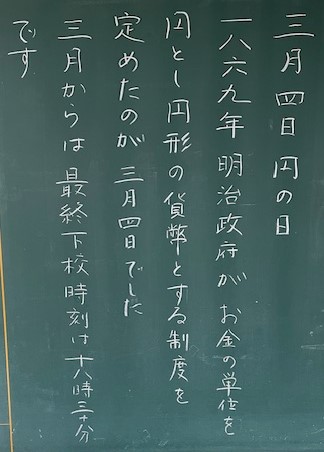 三月四日 円の日
一八六九年 明治政府が お金の単位を
円とし円形の貨幣とする制度を
定めたのが 三月四日でした
三月からは 最終下校時刻は十八時三十分
です